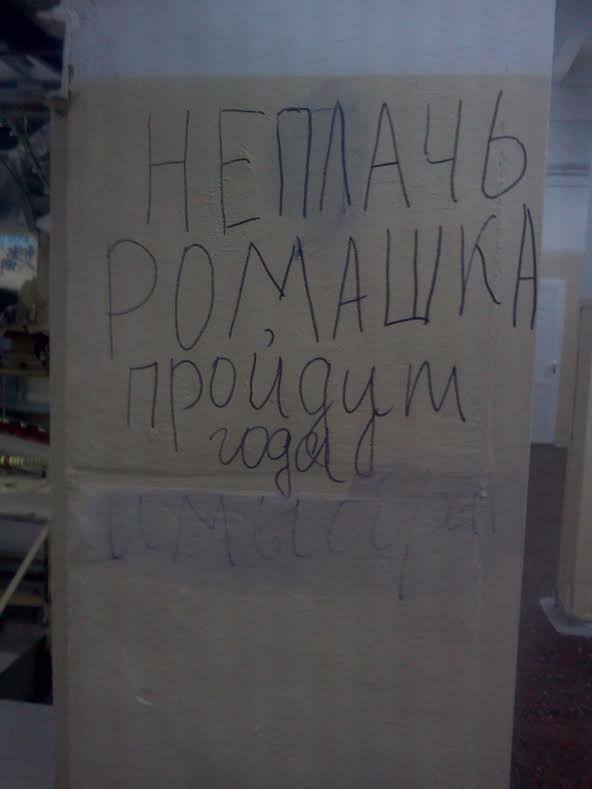 НЕПЛАЧЬ
РОМАШКА
пройдут
года